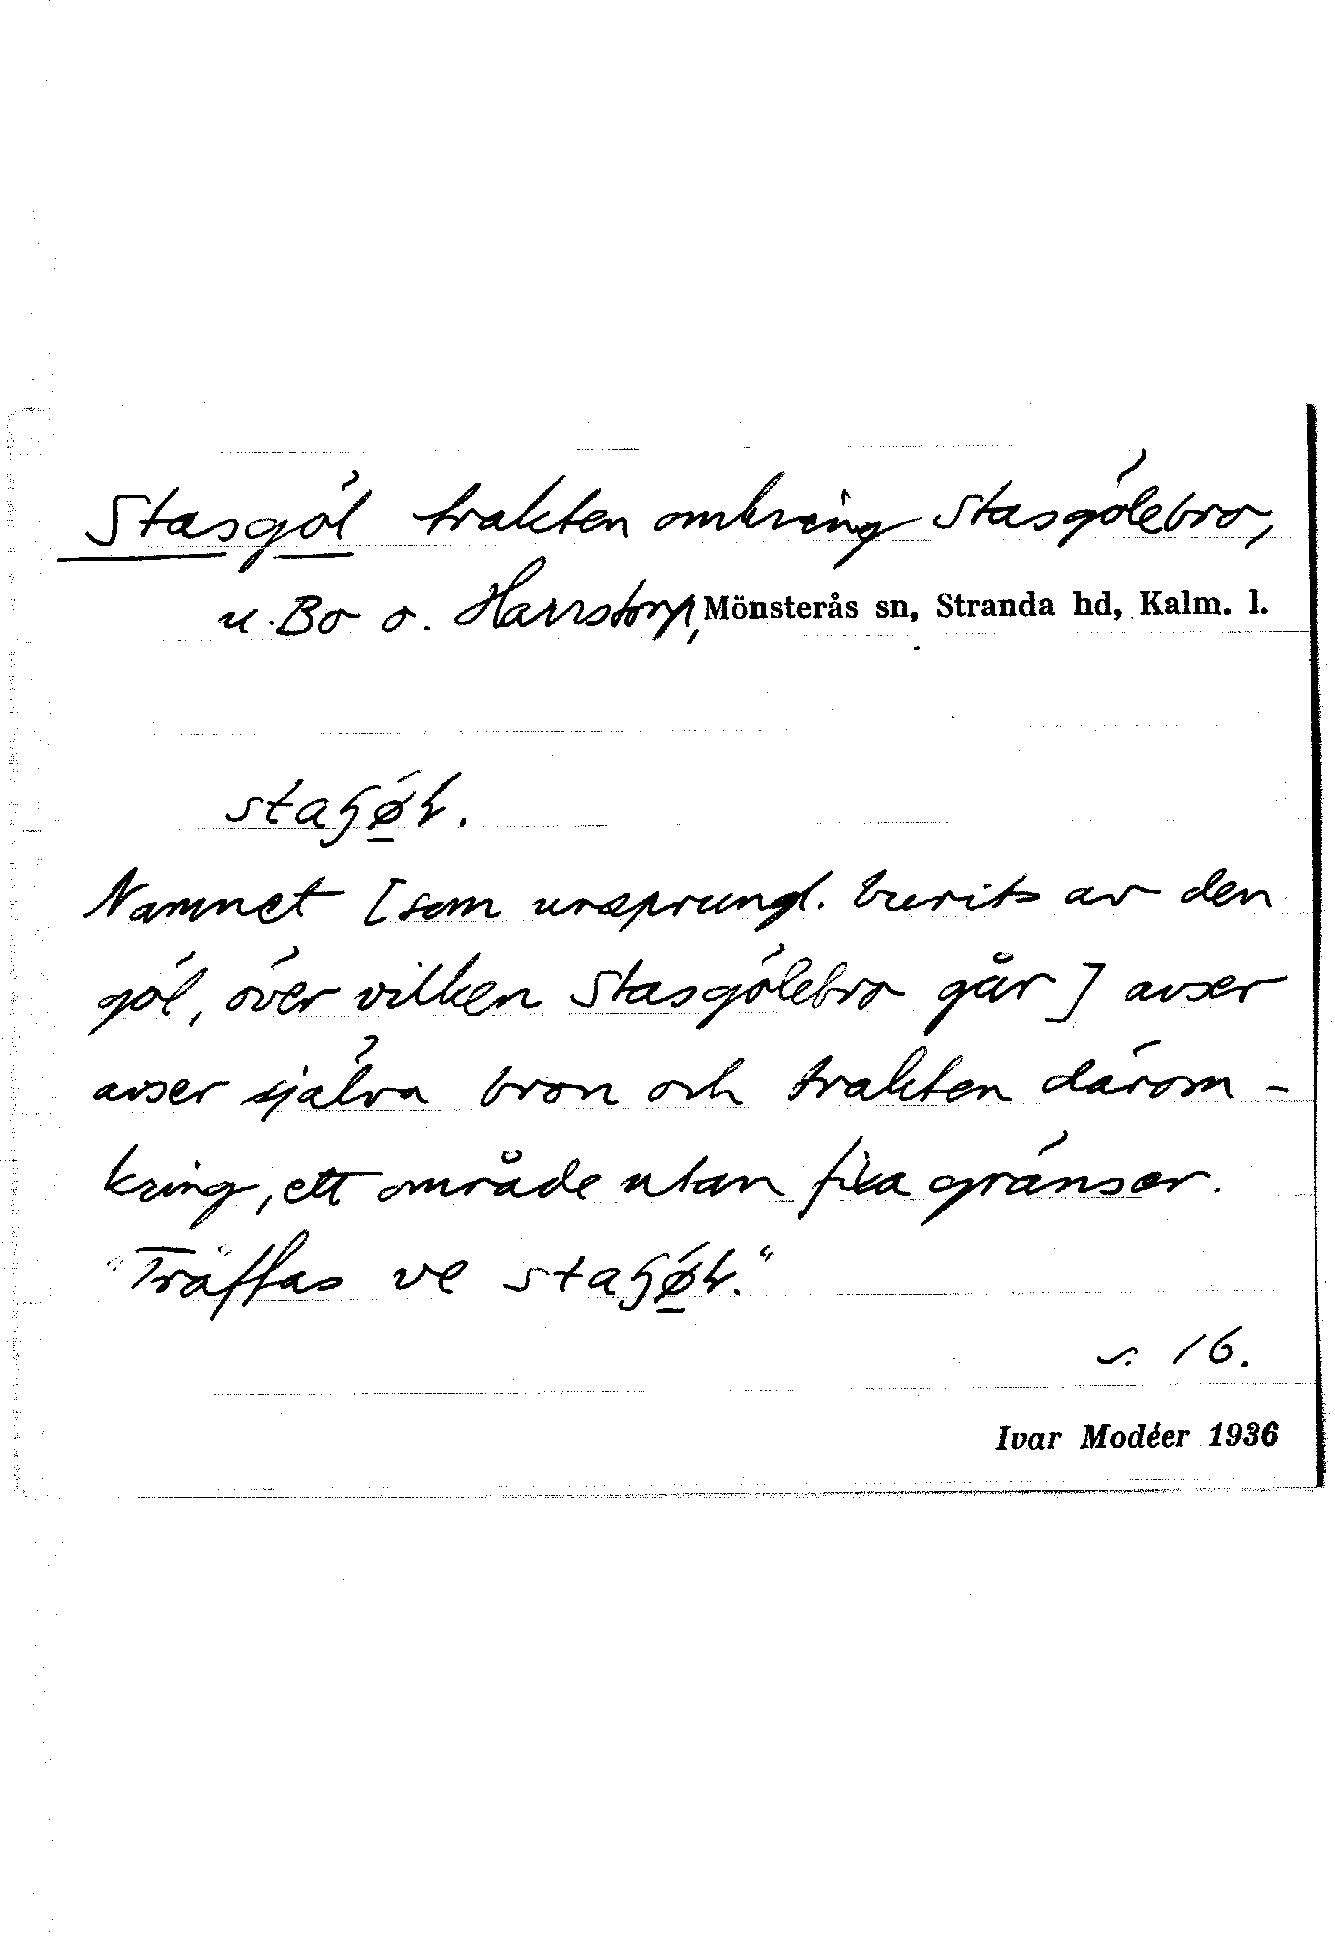 Stasgöl trakten omkring Stasgölebro,
u. Bo o. Harrstorp, Mönsterås sn, Stranda hd, Kalm. l.
Namnet [som ursprungl. burits av den
göl, över vilken Stasgölebro går] avser
avser själva bron och trakten därom-
kring, ett område utan fixa gränser.
"Träffas ve
s. 16.
Ivar Modéer 1936